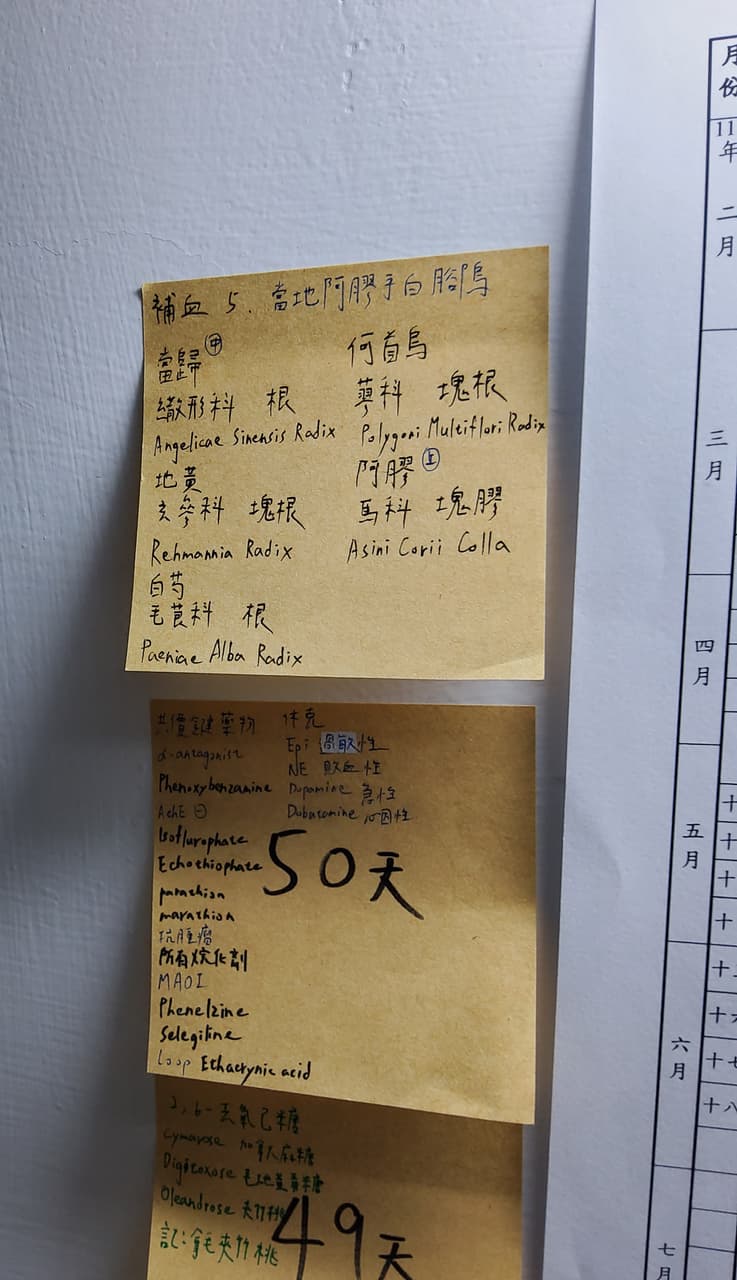 補血 5. 當地阿膠手白腳鳥
當歸 中
繖形科 根
Angelicae Sinensis Radix
地黃
玄參科 塊根
Rehmannia Radix
白芍
毛茛科 根
Paeniae Alba Radix
何首烏
蓼科 塊根
Polygoni Multiflori Radix
阿膠 上
馬科 塊膠
Asini Corii Colla
共價鍵藥物
α-antagonist
Phenoxybenzamine
AchE ⊖
Isoflurophate
Echothiophate
parathion
marathion
抗腫瘤
所有烷化劑
MAOI
Phenelzine
Selegiline
Loop Ethacrynic acid
休克
Epi 過敏性
NE 敗血性
Dopamine 急性
Dobutamine 心因性
50天
2,6-去氧己糖
Cymarose 加拿大麻糖
Digitoxose 毛地黃毒糖
Oleandrose 夾竹桃
記:拿毛夾竹桃
49天
月份
11
年
二月
三月
四月
五月
六月
七月
十
十
十
十
十
十六
十七
十八